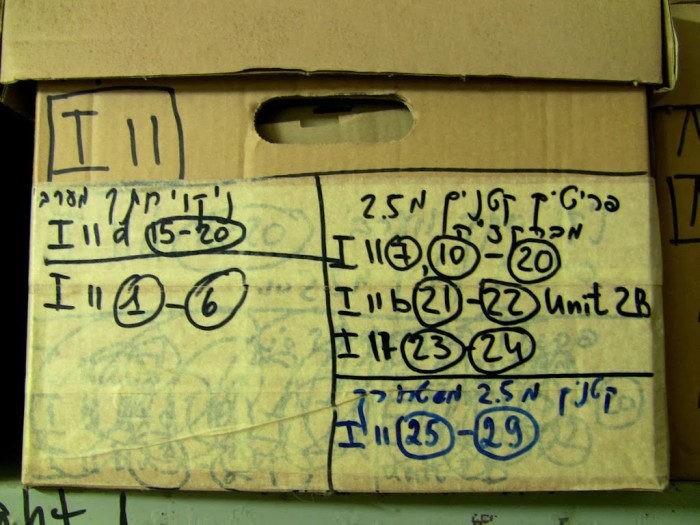 I 11
ניקוי חתך מערב
I 11 d 15-20
I 11 1-6
פריטים קטנים מ 2.5
I 11 7, 10-20
I 11 b 21-22 Unit 2B
I 17 23-24
קטנים מ 2.5
I 11 25-29